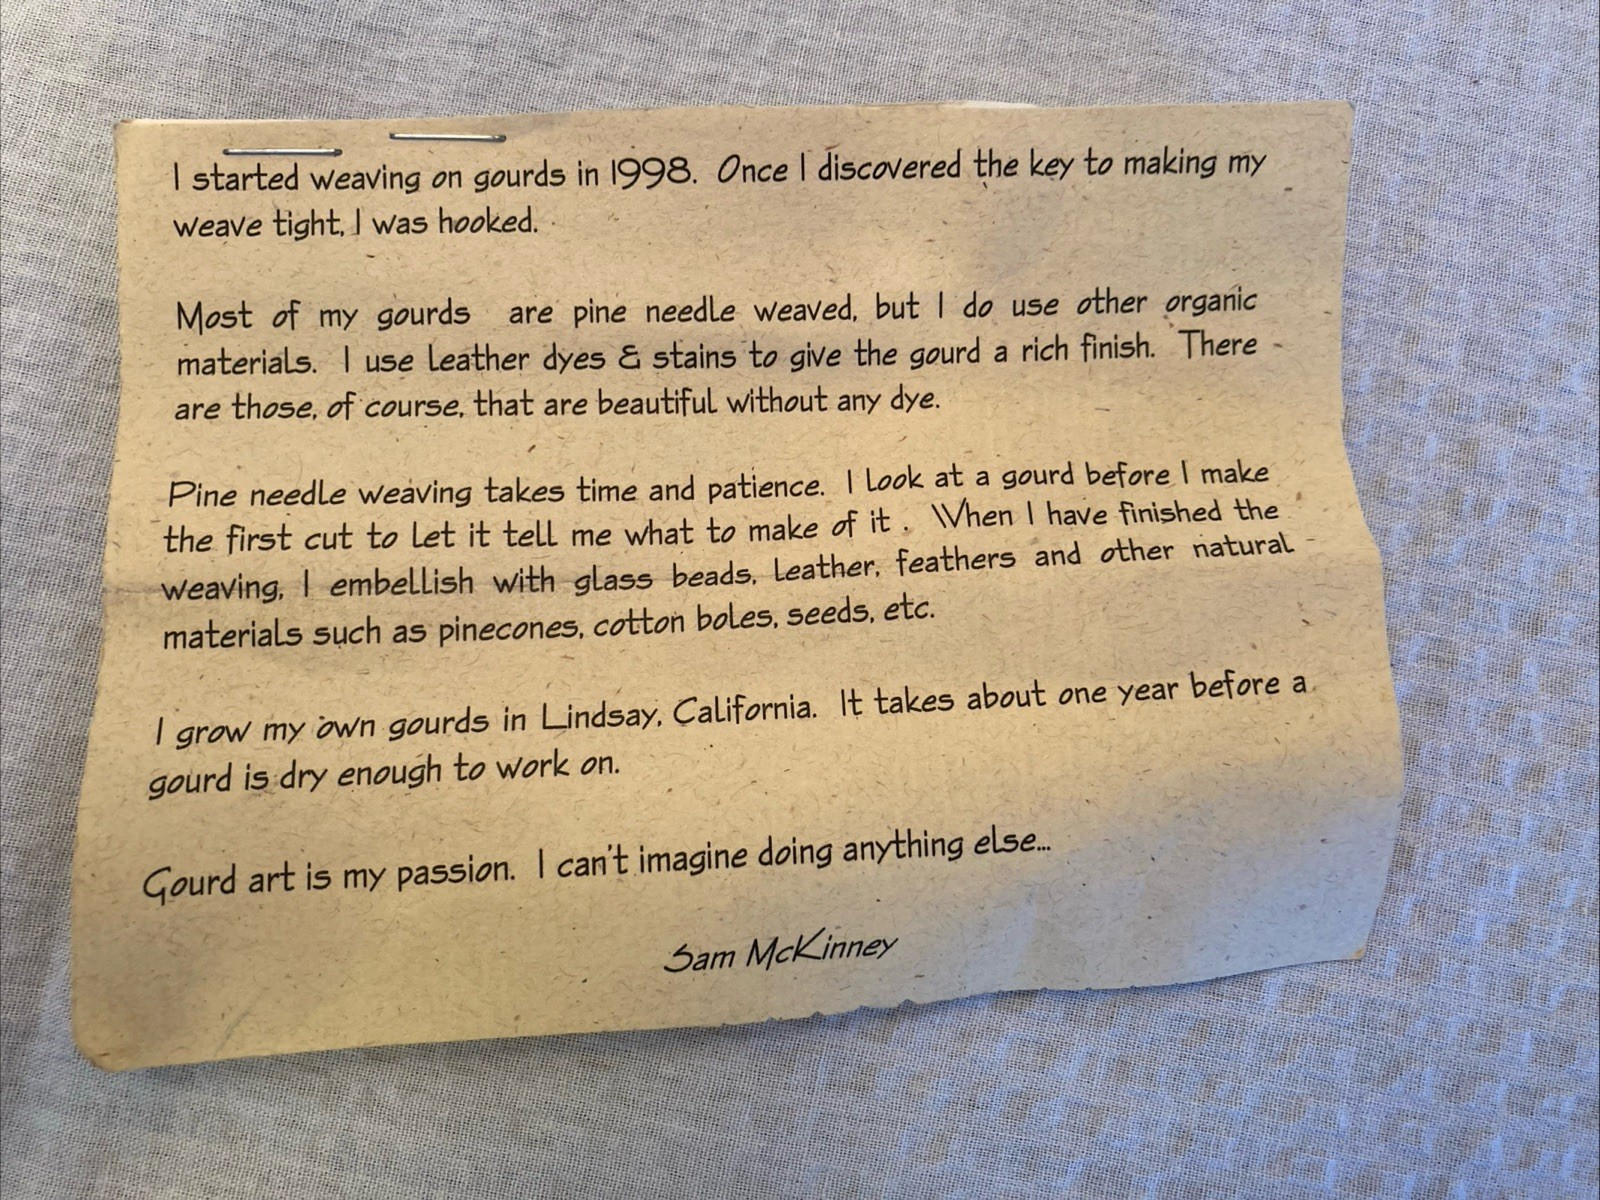 I started weaving on gourds in 1998. Once I discovered the key to making my
weave tight, I was hooked.
Most of my gourds are pine needle weaved, but I do use other organic
materials. I use leather dyes & stains to give the gourd a rich finish. There
are those, of course, that are beautiful without any dye.
Pine needle weaving takes time and patience. I look at a gourd before I make
the first cut to let it tell me what to make of it . When I have finished the
weaving, I embellish with glass beads, leather, feathers and other natural
materials such as pinecones, cotton boles, seeds, etc.
I grow my own gourds in Lindsay, California. It takes about one year before a
gourd is dry enough to work on.
Gourd art is my passion. I can't imagine doing anything else...
Sam McKinney